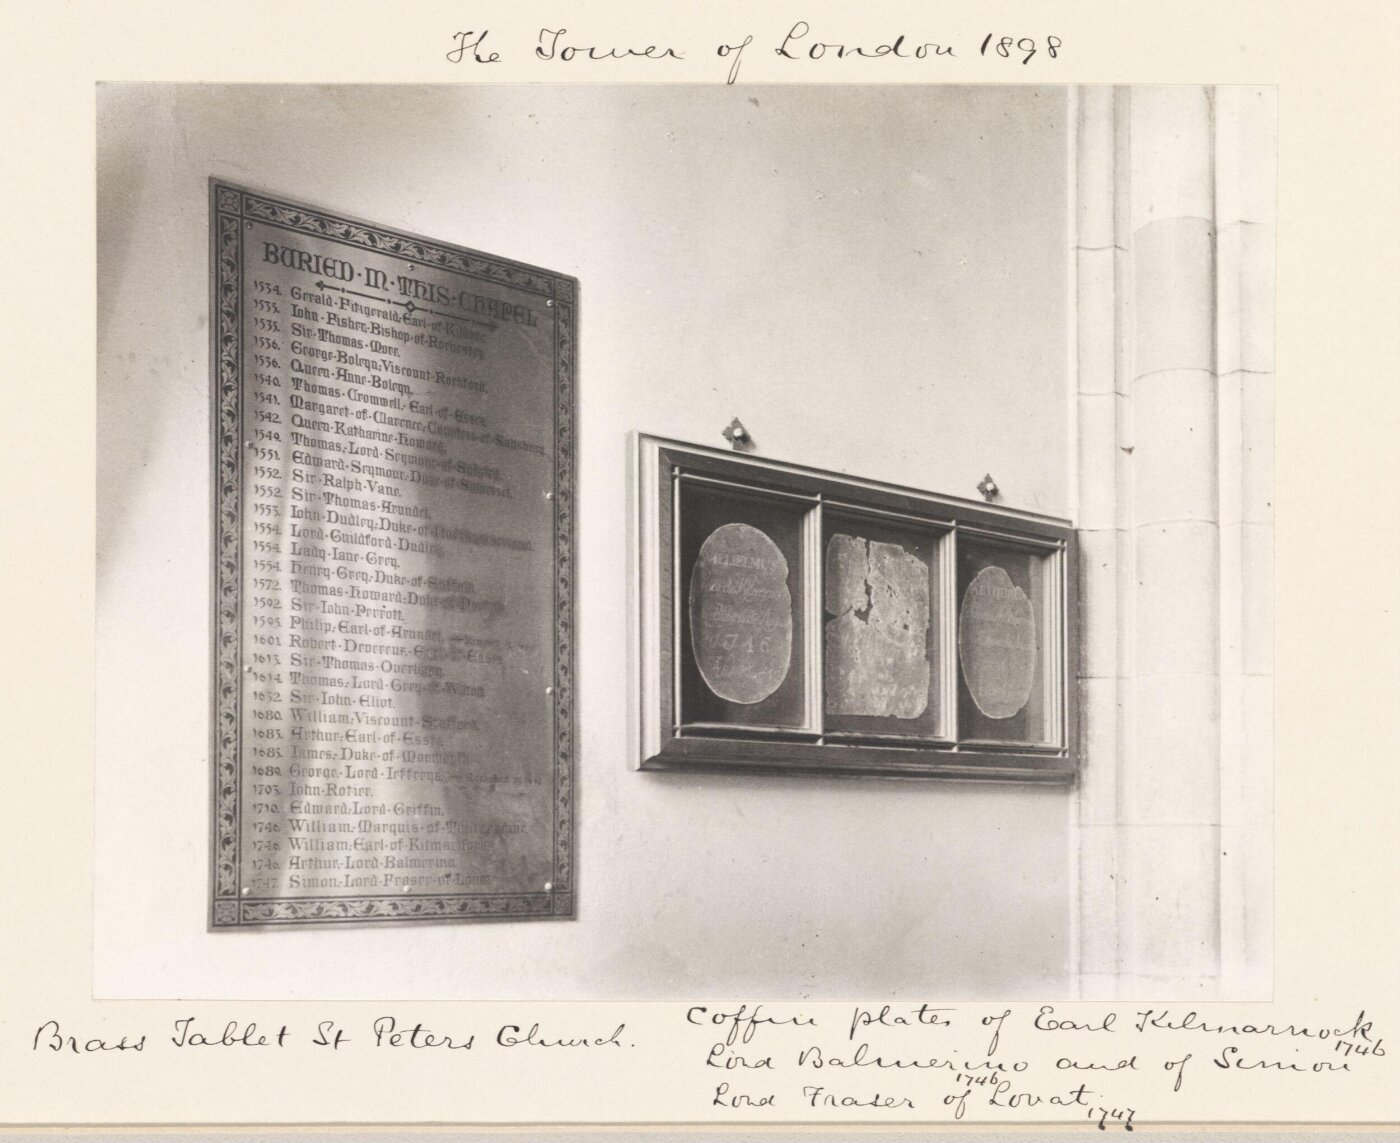 The Tower of London 1898
BURIED·IN·THIS·CHAPEL
1534. Gerald·Fitzgerald, Earl·of·Kildare.
1535. John·Fisher, Bishop·of·Rochester.
1535. Sir·Thomas·More.
1536. George·Boleyn, Viscount·Rochford.
1536. Queen·Anne·Boleyn.
1540. Thomas·Cromwell, Earl·of·Essex.
1541. Margaret·of·Clarence, Countess·of·Salisbury.
1542. Queen·Katharine·Howard.
1549. Thomas, Lord·Seymour·of·Sudeley.
1551. Edward·Seymour, Duke·of·Somerset.
1552. Sir·Ralph·Vane.
1552. Sir·Thomas·Arundel.
1553. John·Dudley, Duke·of·Northumberland.
1554. Lord·Guildford·Dudley.
1554. Lady·Jane·Grey.
1554. Henry·Grey, Duke·of·Suffolk.
1572. Thomas·Howard, Duke·of·Norfolk.
1592. Sir·John·Perrott.
1595. Philip, Earl·of·Arundel.
1601. Robert·Devereux, Earl·of·Essex.
1613. Sir·Thomas·Overbury.
1614. Thomas, Lord·Grey·of·Wilton.
1632. Sir·John·Eliot.
1680. William, Viscount·Stafford.
1683. Arthur, Earl·of·Essex.
1685. James, Duke·of·Monmouth.
1689. George, Lord·Jeffreys.
1703. John·Rotier.
1710. Edward, Lord·Griffin.
1746. William, Marquis·of·Tullibardine.
1746. William, Earl·of·Kilmarnock.
1746. Arthur, Lord·Balmerino.
1747. Simon, Lord·Fraser·of·Lovat.
1746
Brass Tablet St Peters Church.
Coffin plates of Earl Kilmarnock 1746
Lord Balmerino 1746 and of Simon
Lord Fraser of Lovat 1747